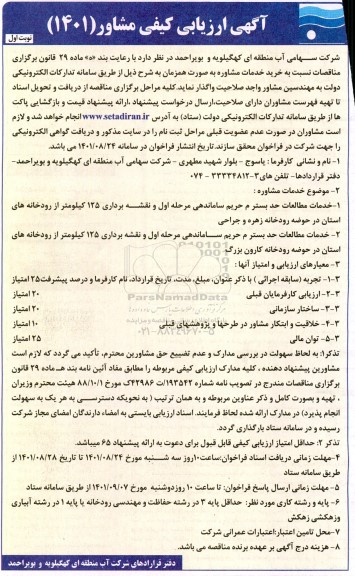 آگهی ارزیابی کیفی مشاور (۱۴۰۱)
نوبت اول
شرکت سهامی آب منطقه ای کهگیلویه و بویراحمد در نظر دارد با رعایت بند «ه» ماده ۲۹ قانون برگزاری
مناقصات نسبت به خرید خدمات مشاوره به صورت همزمان به شرح ذیل از طریق سامانه تدارکات الکترونیکی
دولت به مهندسین مشاور واجد صلاحیت واگذار نماید. کلیه مراحل برگزاری مناقصه از دریافت و تحویل اسناد
تا تهیه فهرست مشاوران دارای صلاحیت، ارسال درخواست پیشنهاد، ارائه پیشنهاد قیمت و بازگشایی پاکت
ها از طریق سامانه تدارکات الکترونیکی دولت (ستاد) به آدرس www.setadiran.ir انجام خواهد شد و لازم
است مشاوران در صورت عدم عضویت قبلی مراحل ثبت نام را در سایت مذکور و دریافت گواهی الکترونیکی
را جهت شرکت در فراخوان محقق سازند. تاریخ انتشار فراخوان در سامانه ۱۴۰۱/۰۸/۲۴ می باشد.
۱- نام و نشانی کارفرما: یاسوج - بلوار شهید مطهری - شرکت سهامی آب منطقه ای کهگیلویه و بویراحمد-
دفتر قراردادها- تلفن های ۳-۳۳۳۳۴۸۱۲ - ۰۷۴
۲- موضوع خدمات مشاوره :
۱- خدمات مطالعات حد بستر و حریم ساماندهی مرحله اول و نقشه برداری ۱۲۵ کیلومتر از رودخانه های
استان در حوضه رودخانه زهره و جراحی
۲- خدمات مطالعات حد بستر و حریم ساماندهی مرحله اول و نقشه برداری ۱۲۵ کیلومتر از رودخانه های
استان در حوضه رودخانه کارون بزرگ
۳- معیارهای ارزیابی و امتیاز آنها:
۳-۱- تجربه (سابقه اجرائی ) با ذکر عنوان، مبلغ، مدت، تاریخ قرارداد، نام کارفرما و درصد پیشرفت ۲۵ امتیاز
۳-۲- ارزیابی کارفرمایان قبلی ۲۰ امتیاز
۳-۳- ساختار سازمانی ۲۰ امتیاز
۳-۴- خلاقیت و ابتکار مشاور در طرحها و پژوهشهای قبلی ۱۰ امتیاز
۳-۵- توان مالی ۲۵ امتیاز
تذکر۱: به لحاظ سهولت در بررسی مدارک و عدم تضییع حق مشاورین محترم، تأکید می گردد که لازم است
مشاورین پیشنهاد دهنده ، کلیه مدارک ارزیابی کیفی مربوطه را مطابق مفاد آئین نامه بند هـ ماده ۲۹ قانون
برگزاری مناقصات مندرج در تصویب نامه شماره ۱۹۳۵۴۲/ت۴۲۹۸۶ک مورخ ۸۸/۱۰/۱ هیئت محترم وزیران
، تهیه و بصورت کامل و ذکر عناوین مربوطه و به همان ترتیب ( به نحویکه دسترسی به هر یک به سهولت
انجام پذیرد) در مدارک ارائه شده لحاظ فرمایند. اسناد ارزیابی بایستی به امضاء دارندگان امضای مجاز شرکت
رسیده و در سامانه ستاد بارگذاری گردد.
تذکر ۲: حداقل امتیاز ارزیابی کیفی قابل قبول برای دعوت به ارائه پیشنهاد ۶۵ میباشد.
۴-مهلت زمانی دریافت اسناد فراخوان: ساعت ۱۰روز سه شنبه مورخ ۱۴۰۱/۰۸/۲۴ تا تاریخ ۱۴۰۱/۰۸/۲۸ از
طریق سامانه ستاد
۵- مهلت زمانی ارسال پاسخ فراخوان: تا ساعت ۱۰ روز دوشنبه مورخ ۱۴۰۱/۰۹/۰۷ از طریق سامانه ستاد
۶- پایه و رشته کاری مورد نظر: حداقل پایه ۳ در رشته حفاظت و مهندسی رودخانه یا پایه ۱ در رشته آبیاری
وزهکشی زهکش
۷-محل تامین اعتبار: اعتبارات عمرانی شرکت
۸- هزینه درج آگهی بر عهده برنده مناقصه می باشد.
دفتر قراردادهای شرکت آب منطقه ای کهگیلویه و بویراحمد
ParsNamadData